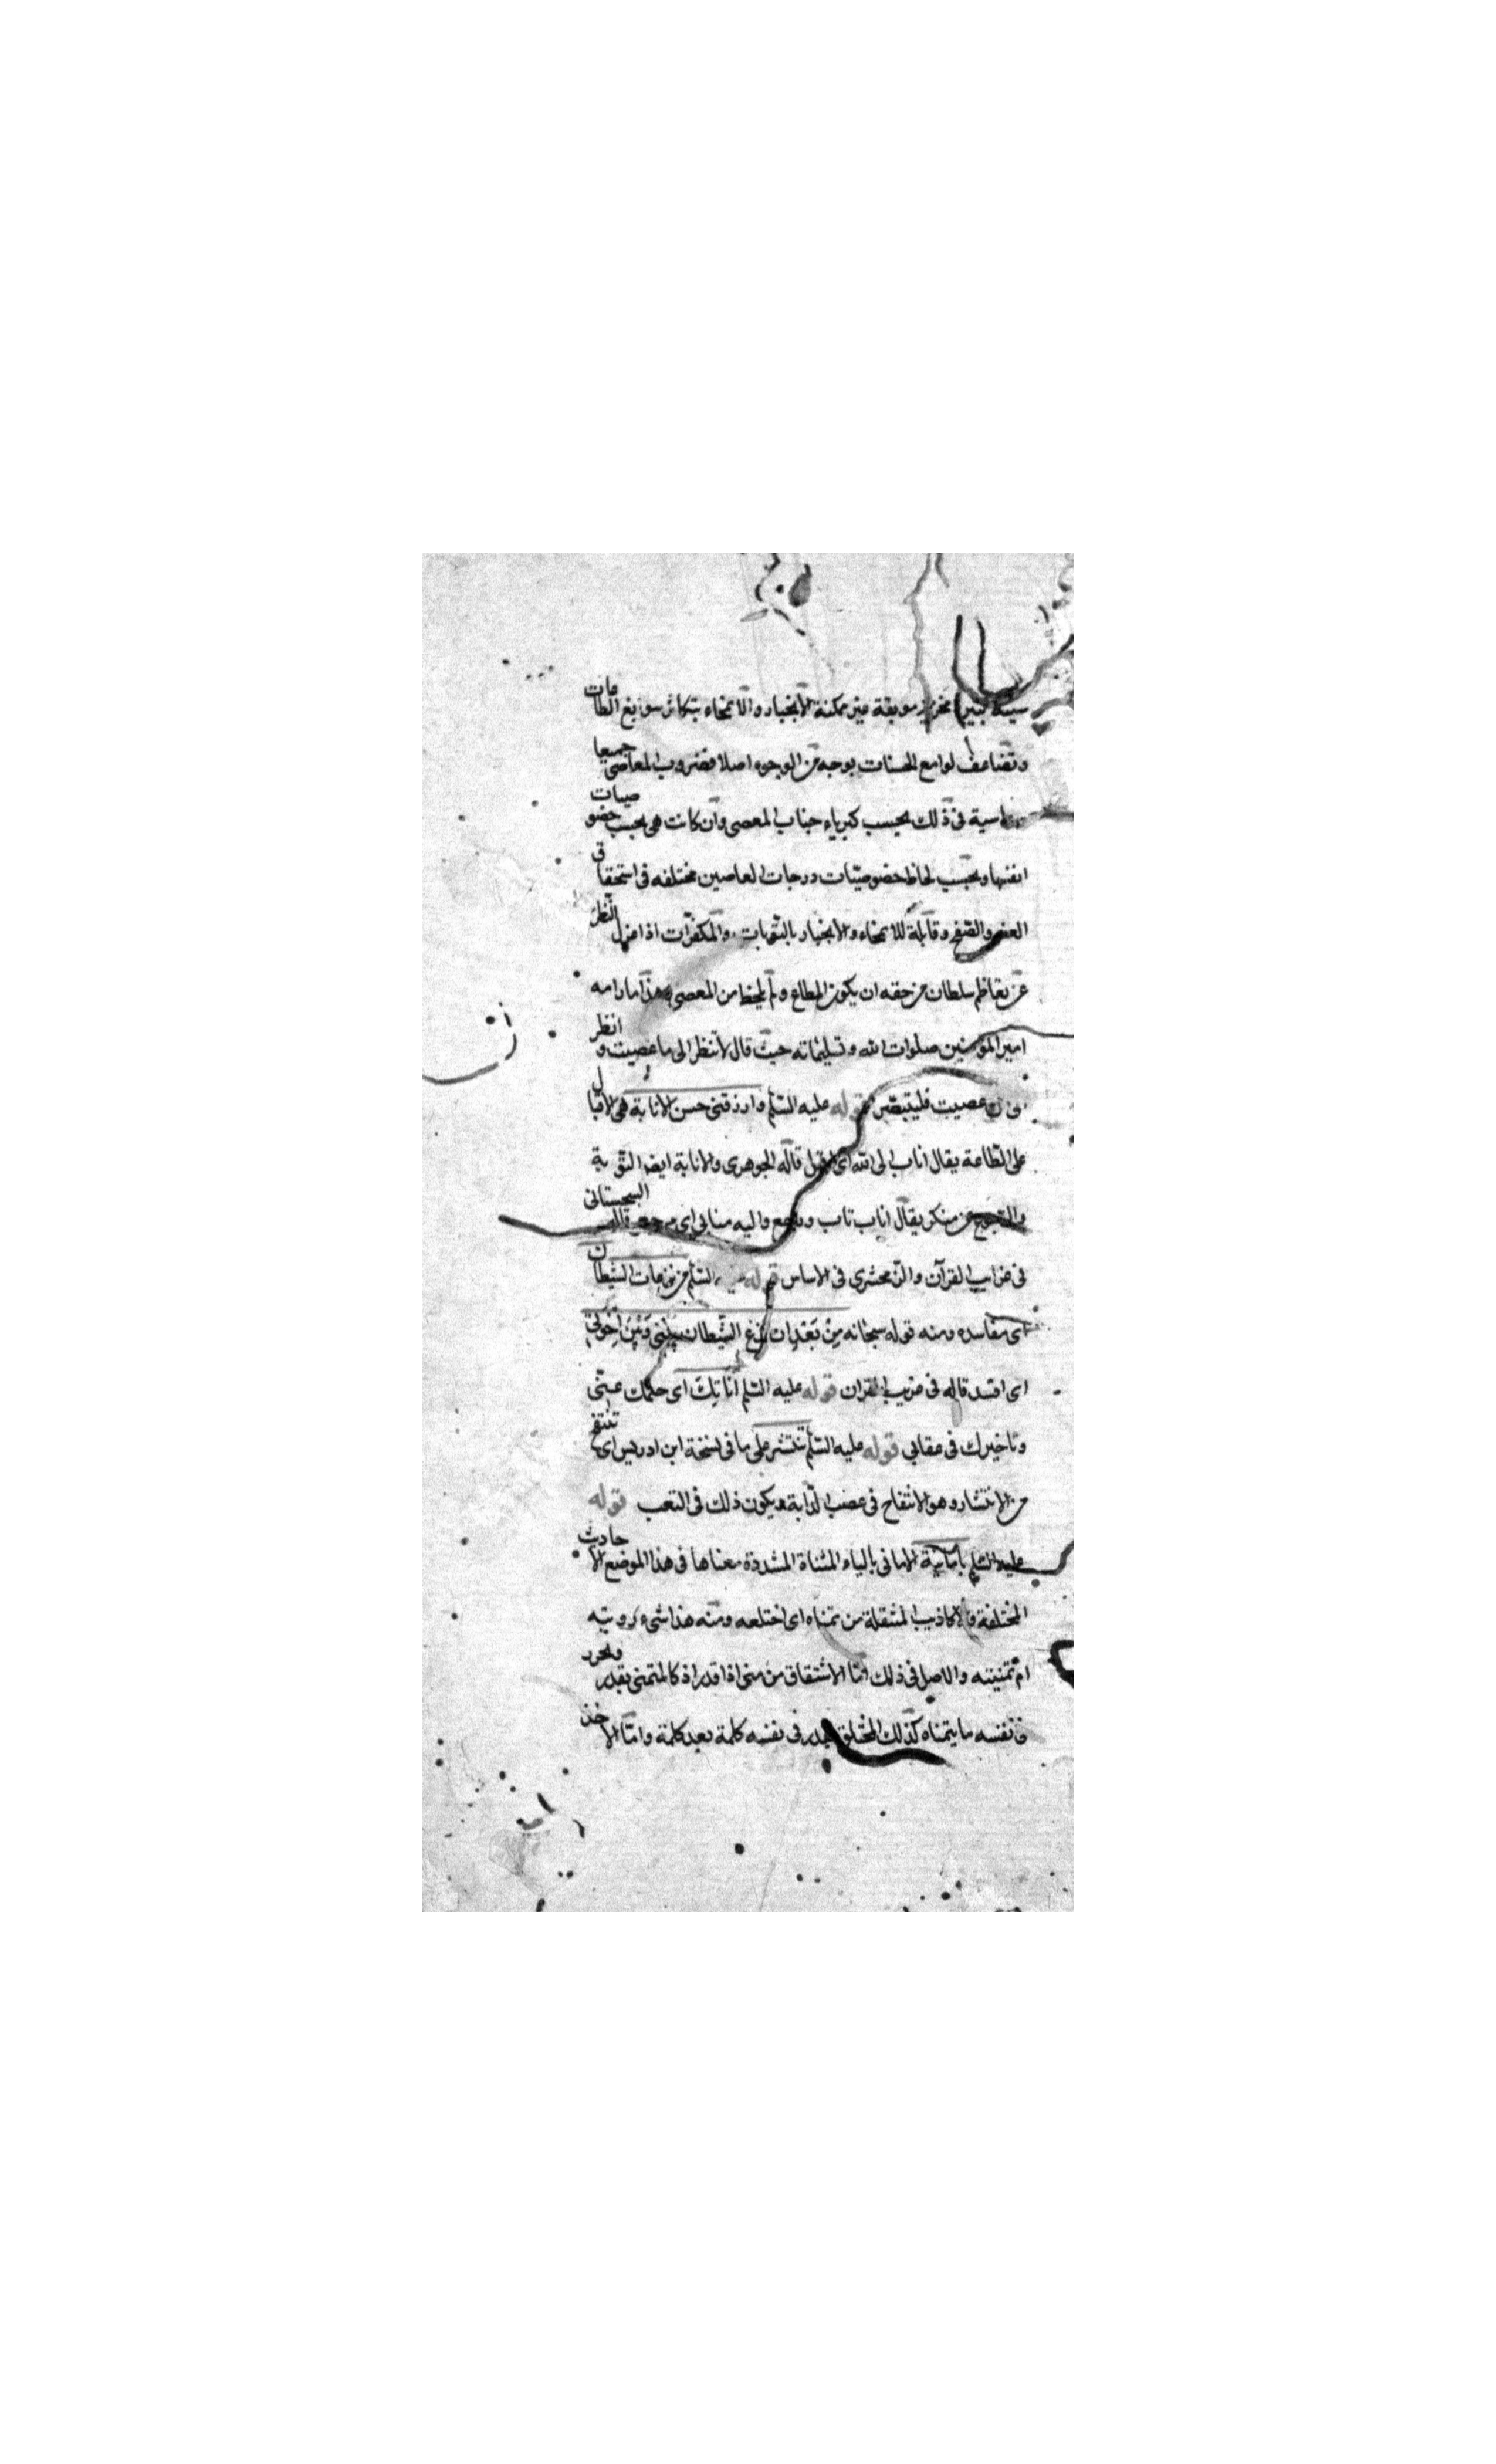 سيئة كبيرة موبقة غير ممكنة الانجبار والامتحاء بتكاثر سوابغ الطاعات
وتضاعف لوامع الحسنات بوجه من الوجوه اصلا فضروب المعاصى جميعا
سواسية فى ذلك بحسب كبرياء جناب المعصى وان كانت هى بحسب خصوصيات
انفسها وبحسب لحاظ خصوصيات درجات العاصين مختلفه فى استحقاق
العفو والصفح وقابلة للامتحاء والانجبار بالتوبات والمكفرات اذا عزل النظر
عن تعاظم سلطان من حقه ان يكون المطاع ولم يلحظ من المعصى هذا ما رامه
امير المؤمنين صلوات الله وتسليماته حيث قال لا تنظر الى ما عصيت وانظر
الى من عصيت فليتبصر قوله عليه السلم وارزقنى حسن الانابة هى الاقبال
على الطاعة يقال اناب الى الله اى اقبل قاله الجوهرى والانابة ايضا التوبة
والرجوع عن منكر يقال اناب تاب ورجع واليه منابى اى مرجعى قاله السجستانى
فى غرايب القرآن والزمحشرى فى الاساس قوله عليه السلم من نزغات الشيطان
اى مفاسده ومنه قوله سبحانه مِنْ بَعْدِ ان نزغ الشّيطان بَيْنى وَبَيْنَ اِخْوَتى
اى افسد قاله فى غريب القران قوله عليه السلم اناتك اى حلمك عنّى
وتاخيرك فى عقابى قوله عليه السلم تنتشر على ما فى نسخة ابن ادريس اى تنتفخ
من الانتشار وهو الانتفاخ فى عصب الدابة ويكون ذلك فى التعب قوله
عليه السلم بامانيه الامانى بالياء المثناة المشددة معناها فى هذا الموضع الاحاديث
المختلفة والاكاذيب المثقلة من تمناه اى اختلعه ومنه هذا شىء رويته
ام تمنيته والاصل فى ذلك امّا الاشتقاق من منى اذا قدر اذ كالمتمنى يقدر ويحرر
فى نفسه ما يتمناه كذلك المختلق يقدر فى نفسه كلمة بعد كلمة وامّا الاخذ